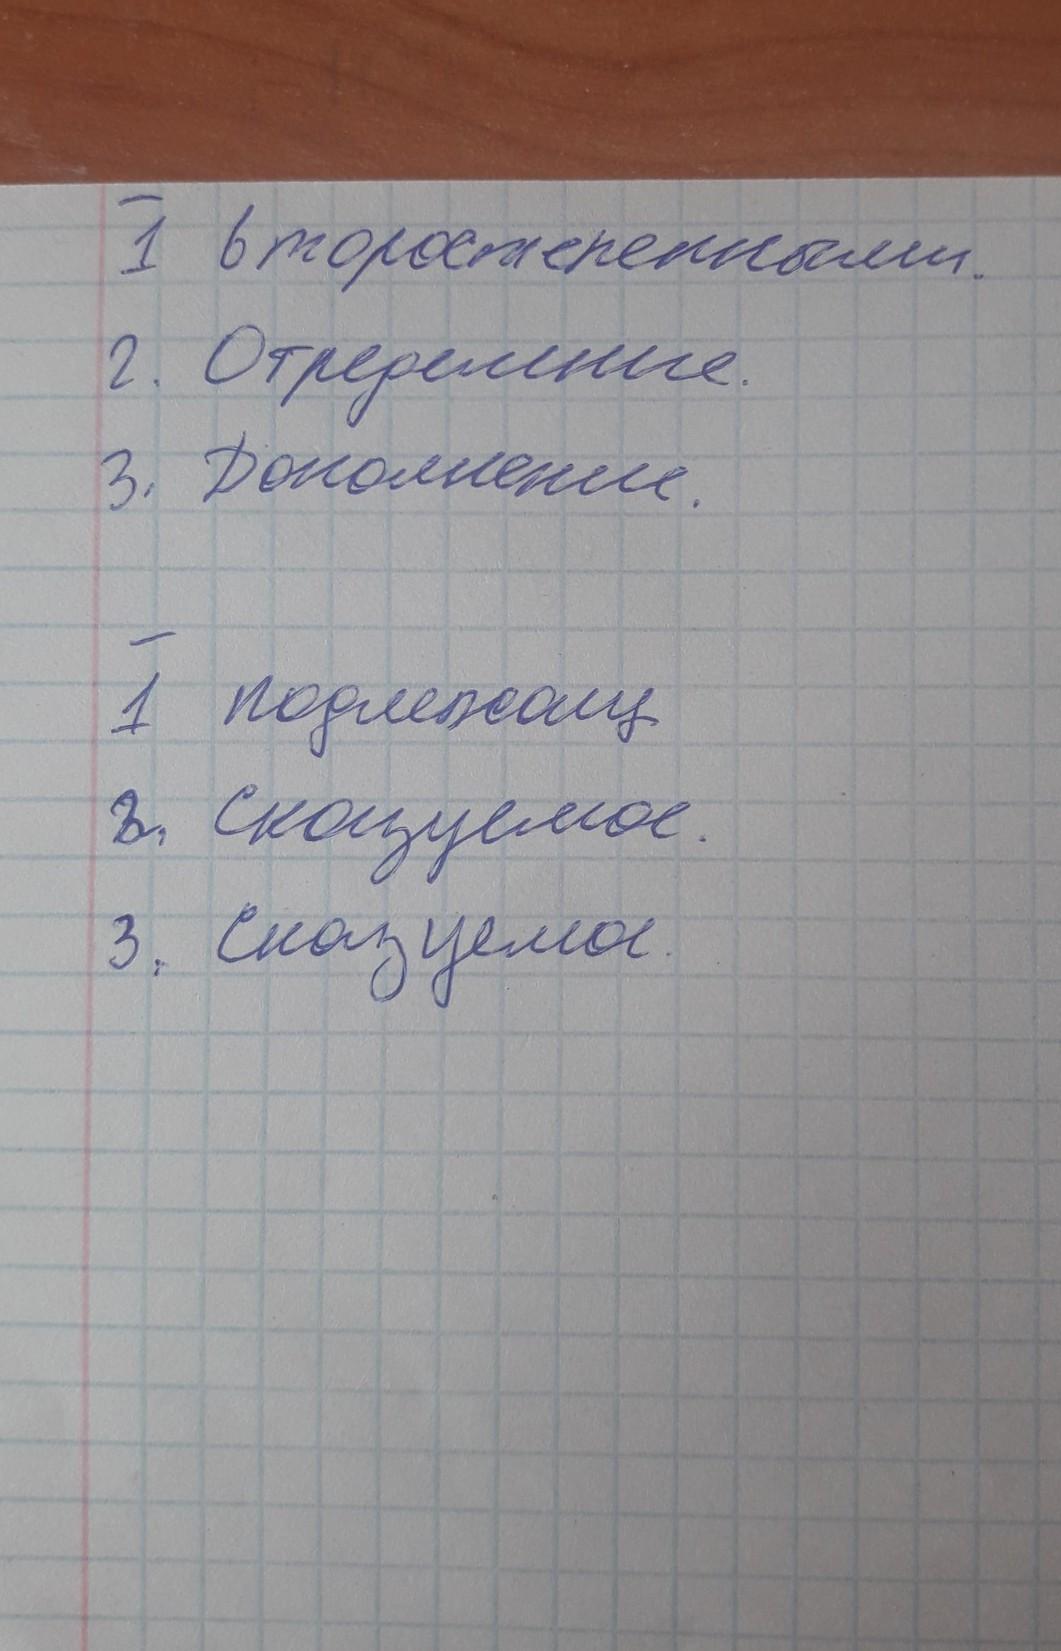 1 второстепенными.
2. Определние.
3. Дополнение.
1 подлежащ
2. Сказуемое.
3. Сказуемое.